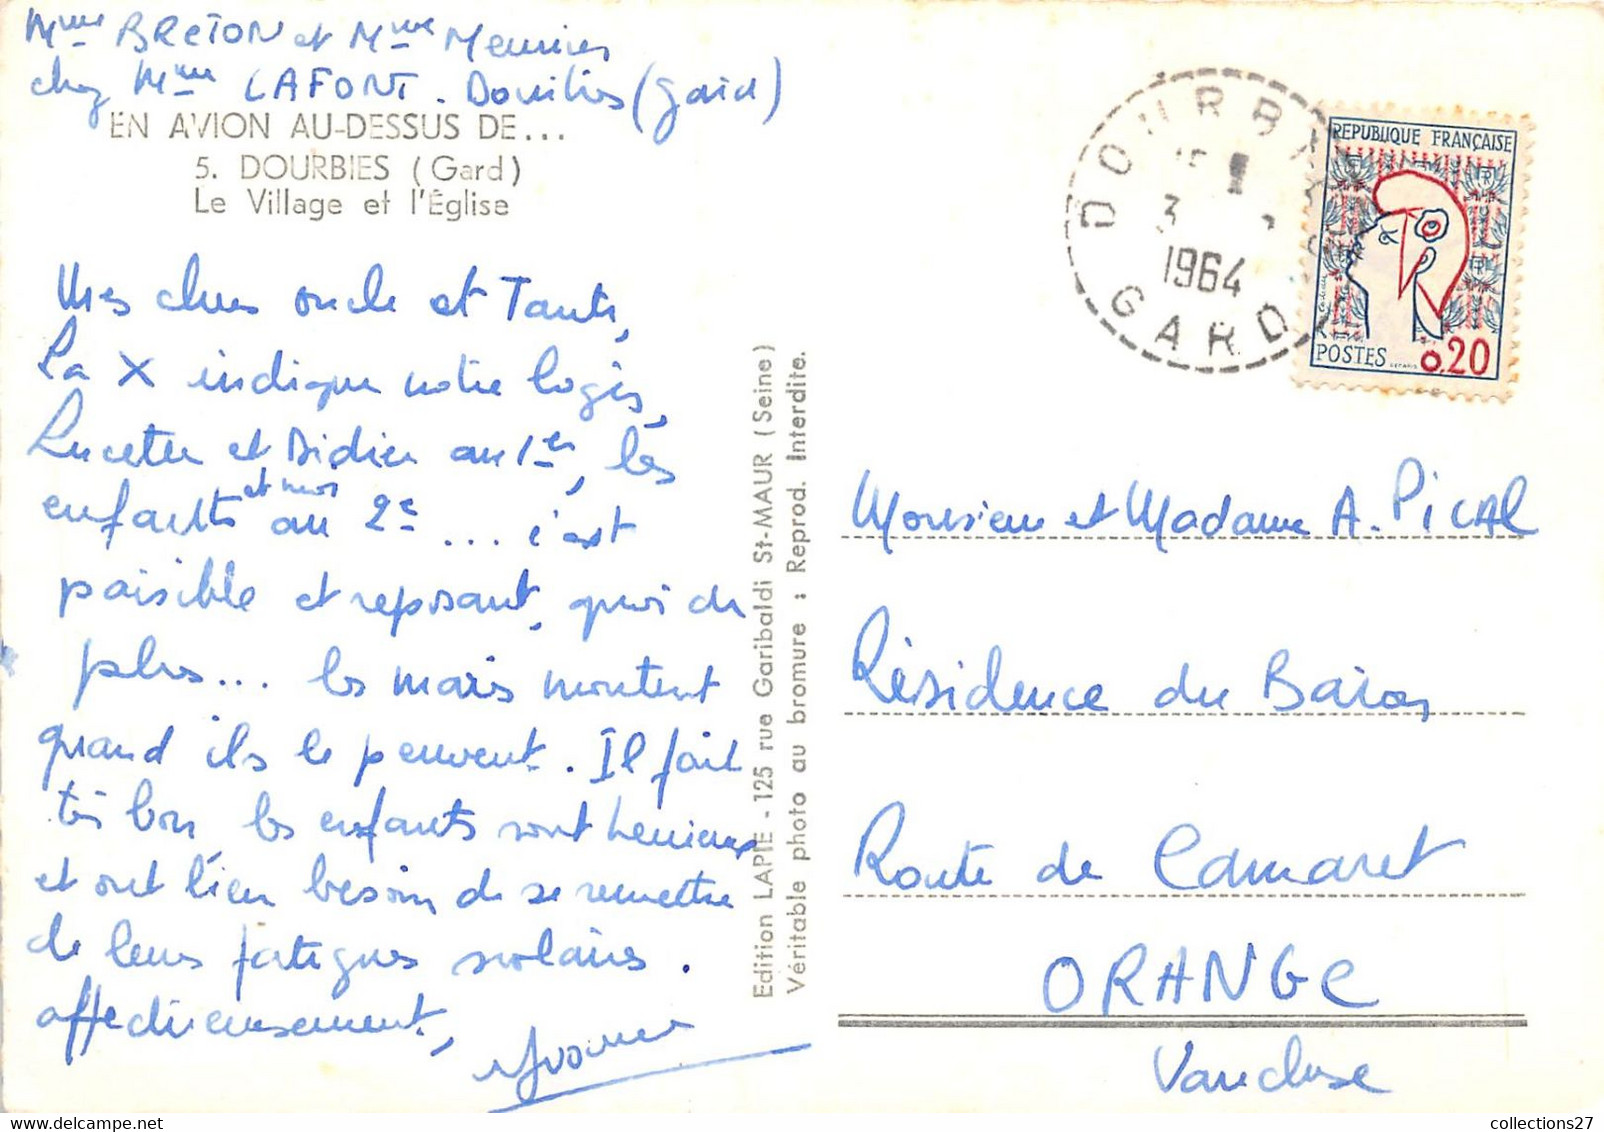 Mme BRETON et Mme Meunier
chez Mme LAFONT. Dourbies (Gard)
EN AVION AU-DESSUS DE...
5. DOURBIES (Gard)
Le Village et l'Église
Mes chers oncle et Tante,
La X indique notre logis,
Lucette et Didier au 1er, les
enfants et moi au 2e ... c'est
paisible et reposant, quoi de
plus ... les mais montent
quand ils le peuvent. Il fait
très bon, les enfants sont heureux
et ont bien besoin de se remettre
de leurs fatigues scolaires.
affectueusement,
Yvonne
Edition LAPIE - 125 rue Garibaldi St-MAUR (Seine)
Véritable photo au bromure : Reprod. Interdite.
DOURBIES
3
1964
GARD
REPUBLIQUE FRANÇAISE
POSTES 0,20
Monsieur et Madame A. PICAL
Résidence du Baron
Route de Camaret
ORANGE
Vaucluse
collections27